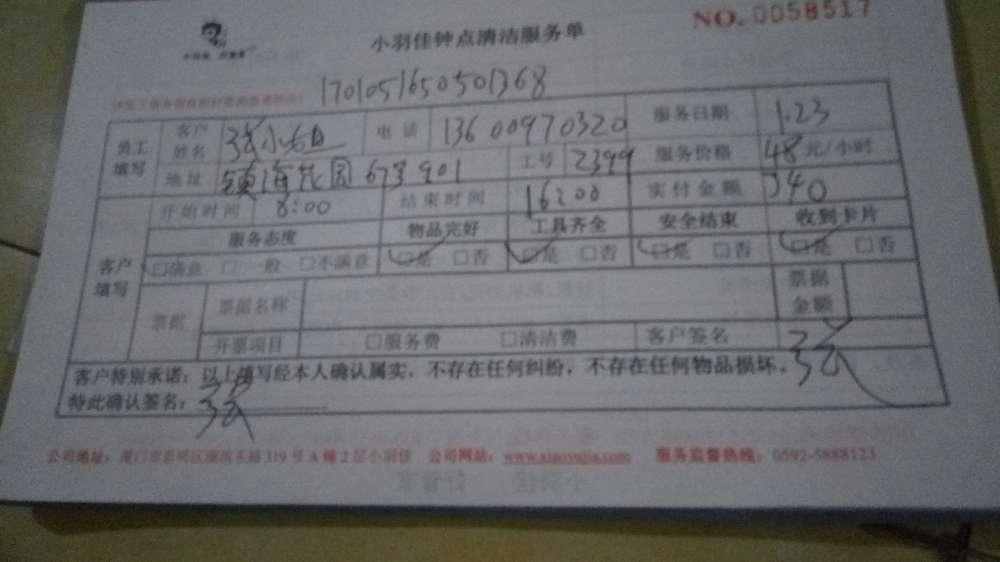 NO.0058517
小羽佳钟点清洁服务单
1701051650501368
员工填写 客户姓名 张小姐 电话 13600970320 服务日期 1.23
地址 镇海花园 901 工号 2399 服务价格 48元/小时
开始时间 8:00 结束时间 16:00 实付金额 340
客户填写 服务态度 物品完好 工具齐全 安全结束 收到卡片
□满意 □一般 □不满意 □是 □否 □是 □否 □是 □否 □是 □否
票据 票据名称 票据金额
开票项目 □服务费 □清洁费 客户签名 张
客户特别承诺：以上填写经本人确认属实，不存在任何纠纷，不存在任何物品损坏。
特此确认签名： 张
公司地址：厦门市思明区湖滨东路319号A幢2层小羽佳 公司网站：www.xiaoyujia.com 服务监督热线：0592-5888123